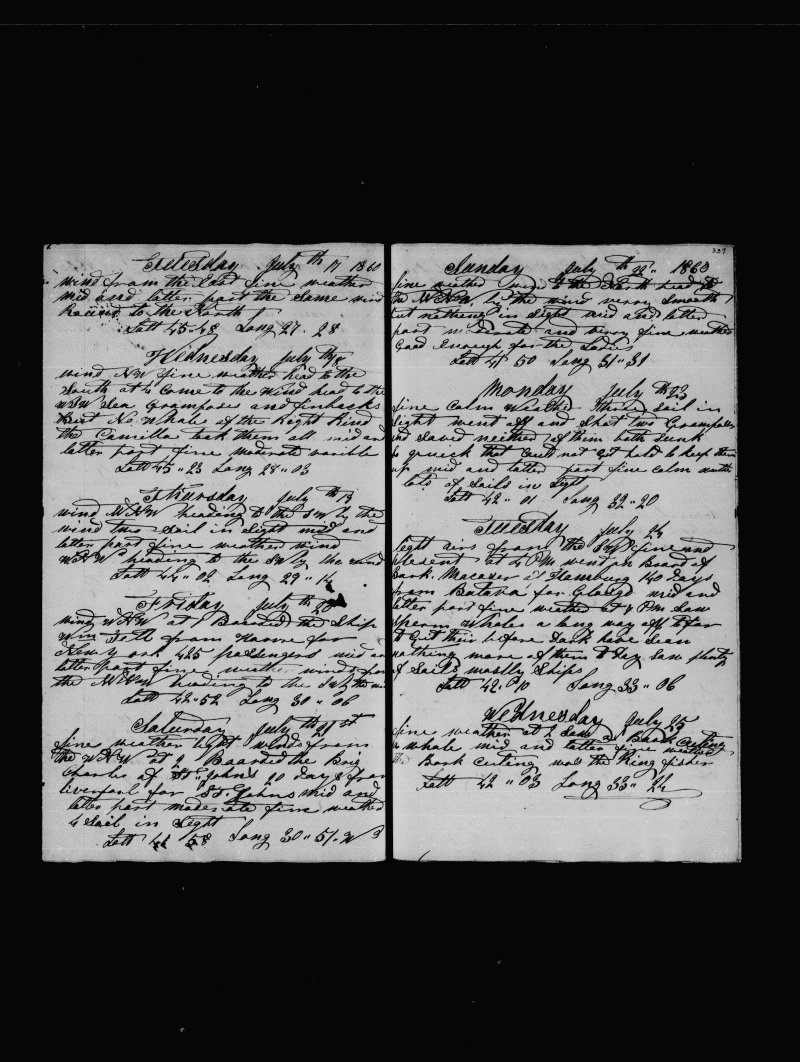 Tuesday July th 17 1860
wind from the East fine weather
mid and latter part the Same wind
Round to the North
Latt 45-48 Long 27-28
Wednesday July th 18
wind NW fine weather head to the
South at 4 Came to the wind head to the
WSW Saw Grampuses and finbacks
But No Whale of the Right Kind
the Camilla took them all mid and
latter part fine moderate
Latt 45"23 Long 28"03
Thursday July th 19
wind WNW heading to the SW by the
wind two Sail in Sight mid and
latter part fine weather wind
WNW heading to the SW by the wind
Latt 44"02 Long 29"14
Friday July th 20
wind WNW at Boarded the Ship
Wm from Havre for
New York 425 passengers mid and
latter part fine weather winds from
the WNW heading to the SW by the
Latt 42-52 Long 30"06
Saturday July th 21 st
fine weather light winds from
the WNW at 2 Boarded the Brig
Charles of St Johns 20 days from
Liverpool for St Johns mid and
latter part moderate fine weather
4 Sail in Sight
Latt 41 58 Long 30"51.W
337
Sunday July th 22" 1860
fine weather wind to the North head to
the WNW by the wind verry Smooth
but nothing in Sight mid and latter
part moderate and verry fine weather
Good Enough for the Ladies
Latt 41 50 Long 31"31
Monday July th 23
fine Calm weather three Sail in
Sight went off and Shot two Grampuses
and Saved neither of them both Sunk
So quick that Could not get hold to keep them
up mid and latter part fine calm
lots of Sails in Sight
Latt 42"01 Long 32"20
Tuesday July 24
light airs from the fine and
pleasent at 4 PM went on Board of
Bark Macaser of Hamburg 140 days
from Batavia for mid and
latter part fine weather at PM Saw
Sperm Whales a long way off to far
to Get their before Dark have Sean
nothing more of them to day Saw plenty
of Sails mostly Ships
Latt 42"10 Long 33"06
Wednesday July 25
fine weather at 2 Saw a Bark Cutting
a whale mid and latter fine weather
the Bark Cuting was the King fisher
Latt 42"03 Long 33"24